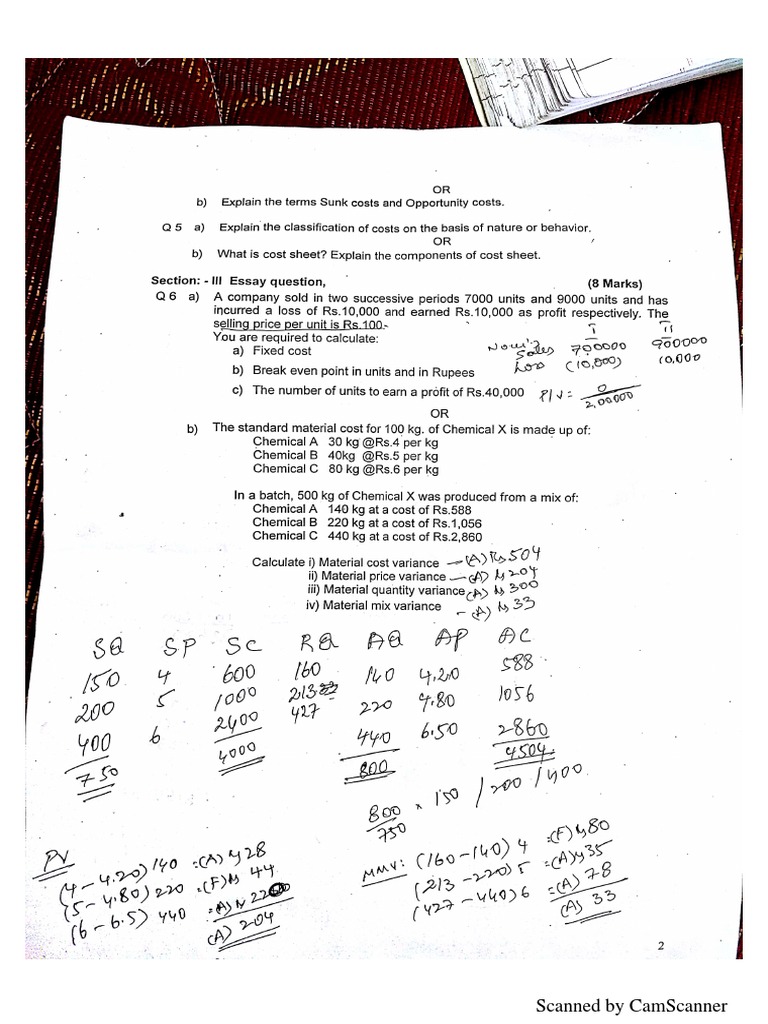 OR
b) Explain the terms Sunk costs and Opportunity costs.
Q 5 a) Explain the classification of costs on the basis of nature or behavior.
OR
b) What is cost sheet? Explain the components of cost sheet.
Section: - III Essay question, (8 Marks)
Q 6 a) A company sold in two successive periods 7000 units and 9000 units and has
incurred a loss of Rs.10,000 and earned Rs.10,000 as profit respectively. The
selling price per unit is Rs.100.
I II
You are required to calculate:
Sales 700000 900000
a) Fixed cost
Loss (10,000) 10,000
b) Break even point in units and in Rupees
c) The number of units to earn a profit of Rs.40,000 P/V = 0
2,00000
OR
b) The standard material cost for 100 kg. of Chemical X is made up of:
Chemical A 30 kg @Rs.4 per kg
Chemical B 40kg @Rs.5 per kg
Chemical C 80 kg @Rs.6 per kg
In a batch, 500 kg of Chemical X was produced from a mix of:
Chemical A 140 kg at a cost of Rs.588
Chemical B 220 kg at a cost of Rs.1,056
Chemical C 440 kg at a cost of Rs.2,860
Calculate i) Material cost variance - (A) Rs 504
ii) Material price variance - (A) Rs 204
iii) Material quantity variance (A) Rs 300
iv) Material mix variance - (A) Rs 33
SQ SP SC RQ AQ AP AC
150 4 600 160 140 4.20 588
200 5 1000 213 220 4.80 1056
400 6 2400 427 440 6.50 2860
750 4000 800 4504
800 × 150 / 200 / 400
750
PV
(4 - 4.20) 140 = (A) Rs 28
(5 - 4.80) 220 = (F) Rs 44
(6 - 6.5) 440 = (A) Rs 220
(A) 204
MMV: (160 - 140) 4 = (F) Rs 80
(213 - 220) 5 = (A) Rs 35
(427 - 440) 6 = (A) 78
(A) 33
2
Scanned by CamScanner